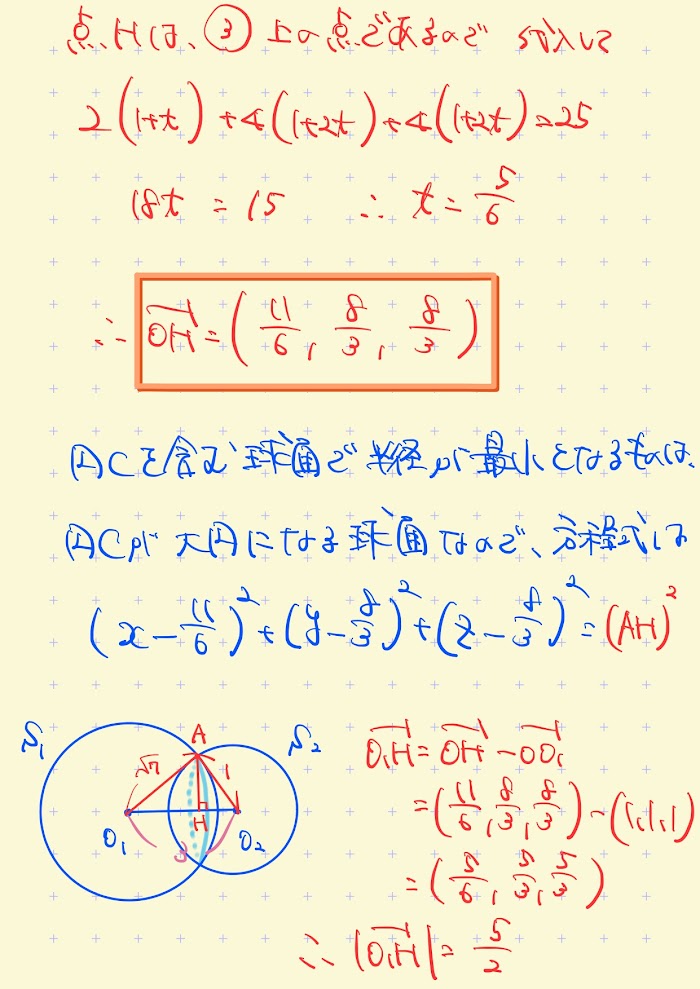 点Hは、③上の点であるので 代入して
2(1+t)+4(1+2t)+4(1+2t)=25
18t = 15 ∴ t = 5/6
∴ →OH = (11/6, 8/3, 8/3)
円Cを含む球面で半径が最小となるものは、
円Cが大円になる球面なので、方程式は
(x-11/6)²+(y-8/3)²+(z-8/3)²=(AH)²
S₁ A S₂
√7 1
H
O₁ 3 O₂
→O₁H = →OH - →OO₁
= (11/6, 8/3, 8/3) - (1,1,1)
= (5/6, 5/3, 5/3)
∴ |→O₁H| = 5/2